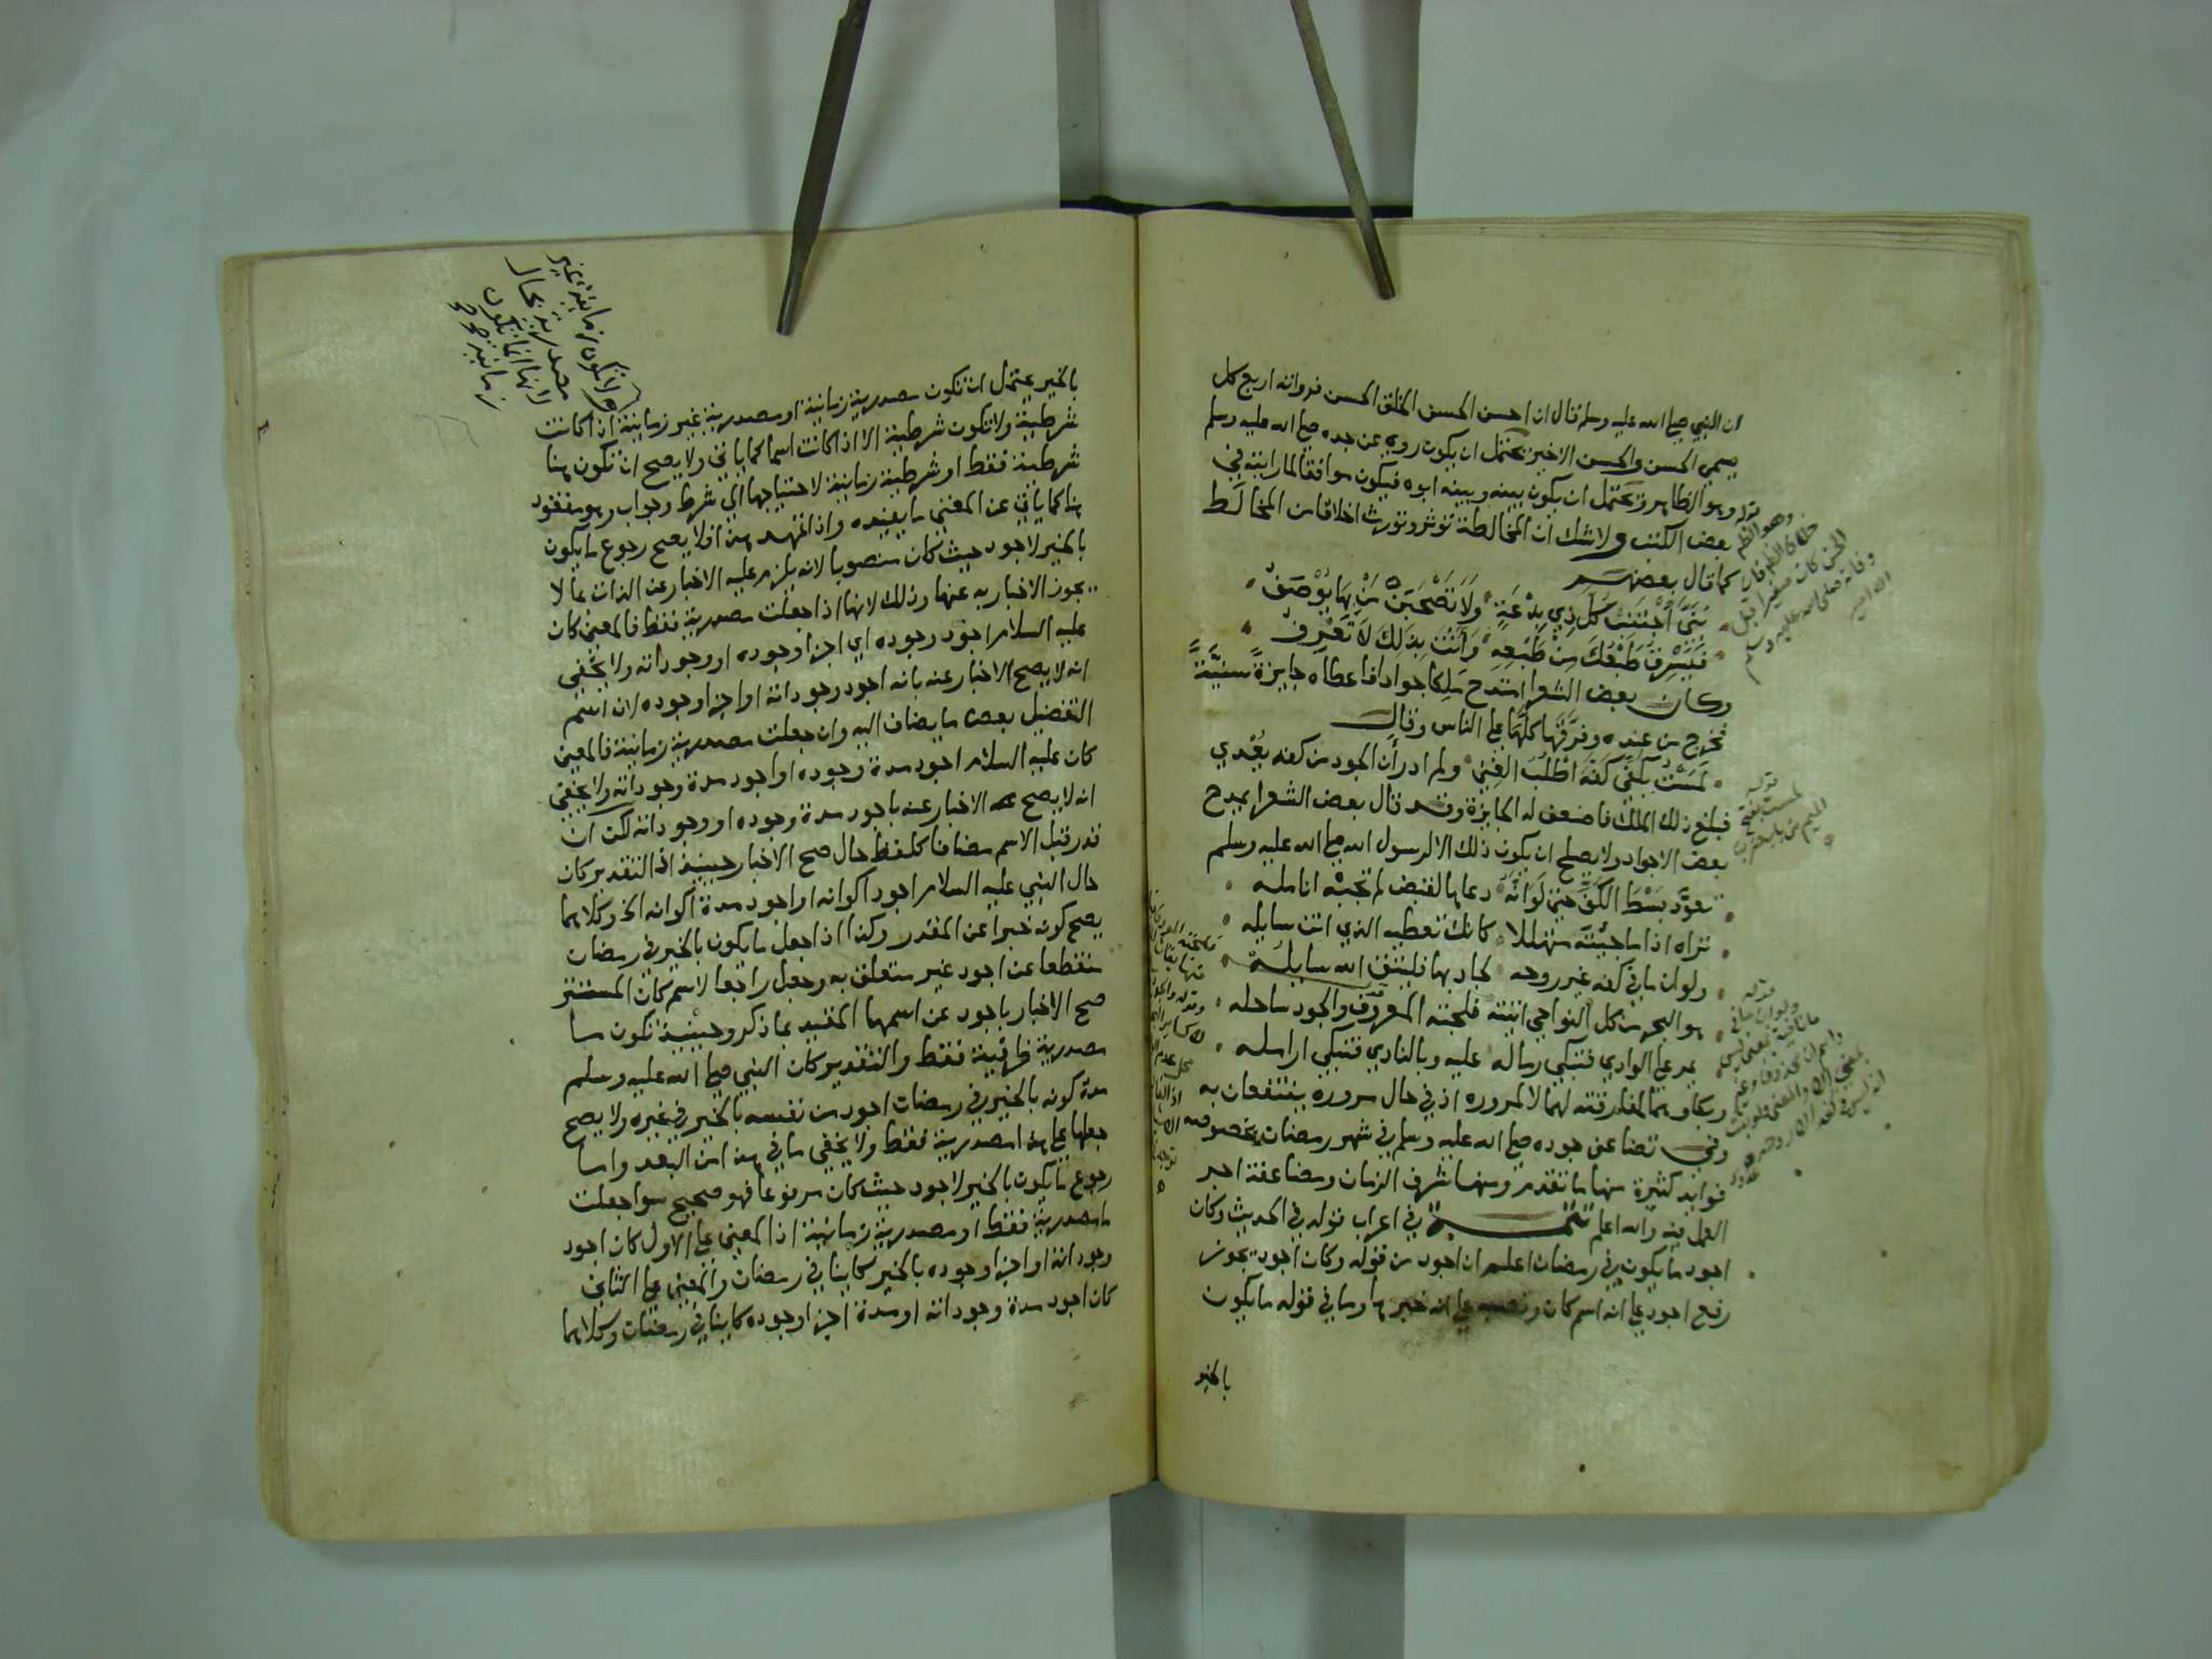 ان النبي صلى الله عليه وسلم قال ان احسن الحسن الخلق الحسن فرواته اربع كل
يسمي الحسن والحسن الاخير يحتمل ان يكون رويه عن جده صلى الله عليه وسلم
وهو الظاهر ويحتمل ان يكون بينه وبينه ابوه فيكون موافقا لما رايته في
بعض الكتب ولا شك ان المخالطة توثر وتورث اخلاقا من المخالط
كما قال بعضهم
كل ذي بدعة ولا تصحبن من بها يوصف
فيسرق طبعك من طبعه وانت بذلك لا تعرف
وكان بعض الشعرا امتدح ملكا جوادا فاعطاه جايزة سنية
فخرج من عنده وفرقها كلها على الناس وقال
لمست بكفي كفه اطلب الغني ولم ادر أن الجود من كفه يعدي
فبلغ ذلك الملك فاضعف له الجايزة وقد قال بعض الشعرا يمدح
بعض الاجواد ولا يصلح ان يكون ذلك الا لرسول الله صلى الله عليه وسلم
تعود بسط الكف حتى لو انه دعاها لقبض لم تجبه انامله
تراه اذا ما جئته متهللا كانك تعطيه الذي انت سايله
ولو ان ما في كفه غير روحه لجاد بها فليتق الله سايله
هو البحر من كل النواحي اتيته فلجته المعروف والجود ساحله
يمر على الوادي فتبكي رماله عليه وبالنادي فتبكي ارامله
وبكاوهما لمفارقته لهما لا لمروره اذ في حال مروره ينتفعان به
وفي تضاعف جوده صلى الله عليه وسلم في شهر رمضان بخصوصه
فوايد كثيرة منها ما تقدم ومنها شرف الزمان ومضاعفة اجر
العمل فيه والله اعلم تتمة في اعراب قوله في الحديث وكان
اجود ما يكون في رمضان اعلم ان اجود من قوله وكان اجود يجوز
رفع اجود على انه اسم كان ونصبه على انه خبرها وما في قوله ما يكون
بالخير
قوله
لمست بفتح
الميم من باب ضرب
بالخير يحتمل ان تكون مصدرية زمانية او مصدرية غير زمانية اذا كانت
شرطية ولا تكون شرطية الا اذا كانت اسما كما ياتي ولا يصح ان تكون هنا
شرطية فقط او شرطية زمانية لاحتياجها الي شرط وجواب وهو مفقود
هنا كما ياتي عن المغني ما يفيده واذا تمهد هذا فلا يصح رجوع ما يكون
بالخير لاجود حيث كان منصوبا لانه يلزم عليه الاخبار عن الذات بما لا
يجوز الاخبار به عنها وذلك لانها اذا جعلت مصدرية فقط فالمعني كان
عليه السلام اجود وجوده اي اجزا وجوده او وجوداته ولا يخفي
انه لا يصح الاخبار عنه بانه اجود وجوداته او اجزا وجوده لان اسم
التفضيل بعض ما يضاف اليه وان جعلت مصدرية زمانية فالمعني
كان عليه السلام اجود مدة وجوده او اجود مدة وجوداته ولا يخفي
انه لا يصح الاخبار عنه باجود مدة وجوده او وجوداته لكن ان
قدر قبل الاسم مضافا كلفظ حال صح الاخبار حينيذ اذ التقدير كان
حال النبي عليه السلام اجود اكوانه او اجود مدة اكوانه الخ وكلاهما
يصح كونه خبرا عن المقدر وكذا اذا جعل ما يكون بالخير في رمضان
منقطعا عن اجود غير متعلق به وجعل راجعا لاسم كان المستتر
صح الاخبار باجود عن اسمها المقيد بما ذكر وحينيذ تكون ما
مصدرية ظرفية فقط والتقدير كان النبي صلى الله عليه وسلم
مدة كونه بالخير في رمضان اجود من نفسه بالخير في غيره ولا يصح
جعلها على هذا مصدرية فقط ولا يخفي ما في هذا من البعد واما
رجوع ما يكون بالخير لاجود حيث كان مرفوعا فهو صحيح سوا جعلت
ما مصدرية فقط او مصدرية زمانية اذ المعني على الاول كان اجود
وجوداته او اجزا وجوده بالخير كاينا في رمضان والمعني على الثاني
كان اجود مدة وجوداته او مدة اجزا وجوده كاينا في رمضان وكلاهما
ولا تكون زمانية غير
مصدرية بحال
لانها انما تكون
زمانية